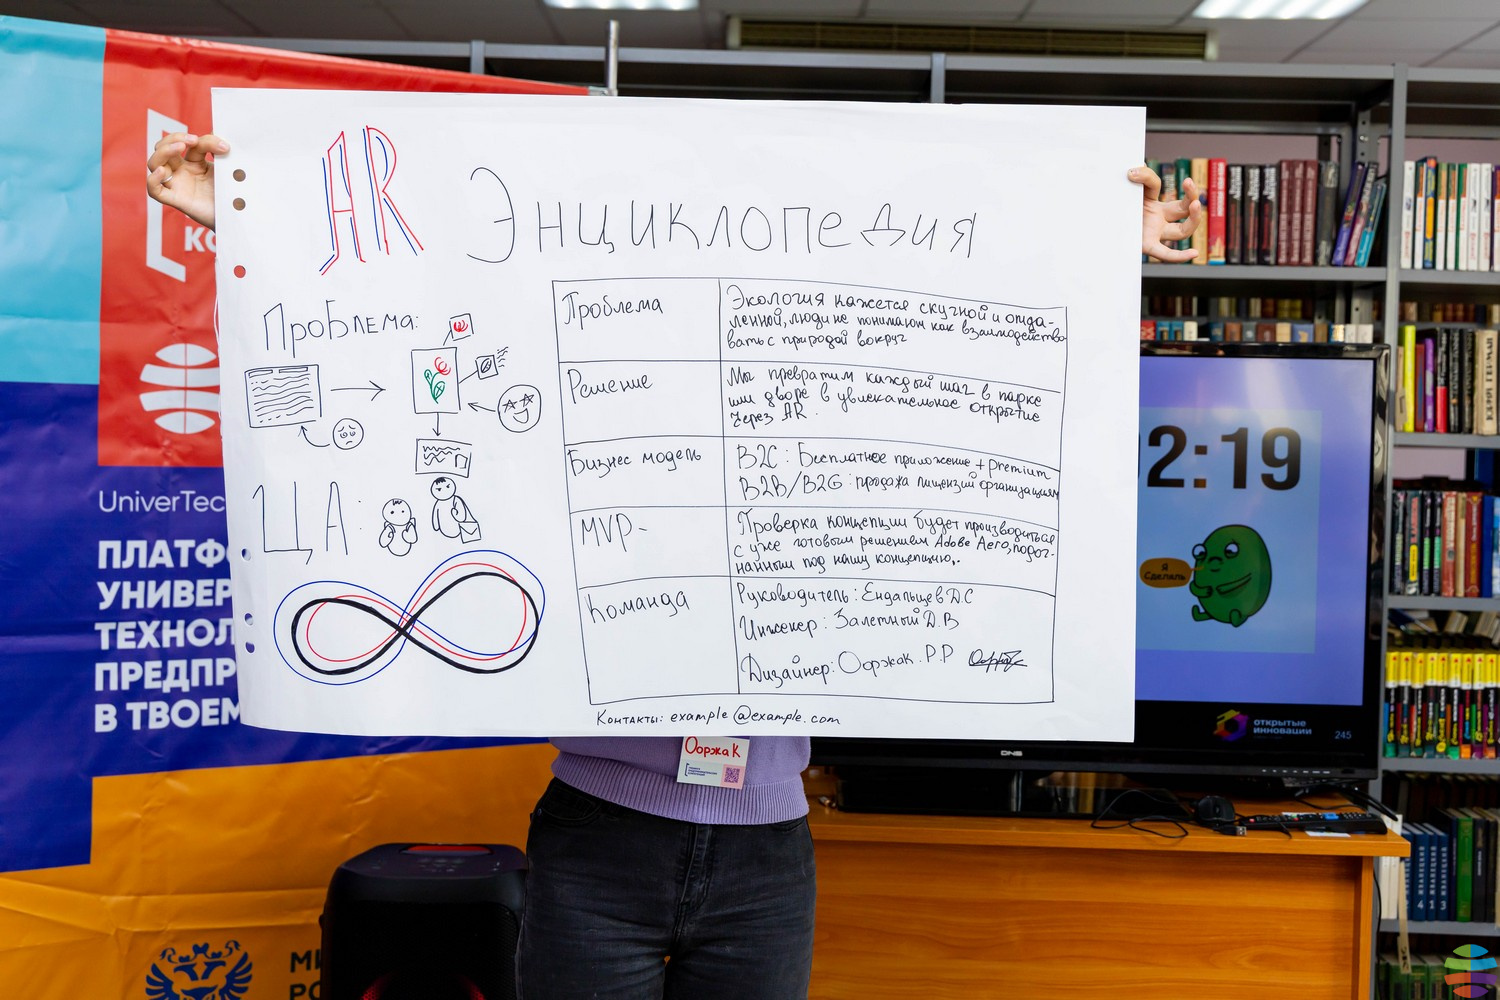 AR Энциклопедия
Проблема:
ЦА:
Проблема
Экология кажется скучной и отда-
ленной, люди не понимают как взаимодейство
вать с природой вокруг
Решение
Мы превратим каждый шаг в парке
или дворе в увлекательное открытие
через AR.
Бизнес модель
B2C: Бесплатное приложение + premium
B2B/B2G: продажа лицензий организациям
MVP-
Проверка концепции будет производиться
с уже готовым решением Adobe Aero, подог-
нанным под нашу концепцию.
Команда
Руководитель: Ендальцев Д.С
Инжекер: Залетный Д.В
Дизайнер: Ооржак. Р.Р
Контакты: example@example.com
Ооржак
UniverTec
ПЛАТФ
УНИВЕР
ТЕХНОЛ
ПРЕДПР
В ТВОЕМ
КО
МИ
РО
02:19
Я
Сделяль
открытые
инновации
245
DNS